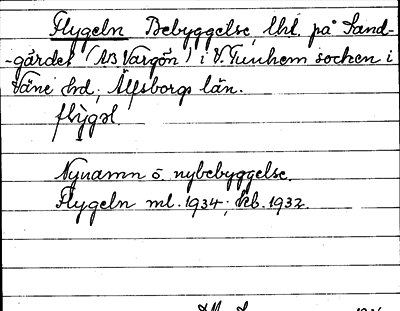 Flygeln Bebyggelse, lht. på Sand-
-gärdet (NB Vargön) i V. Tunhem socken i
Väne hd, Älfsborgs län.
flỳgəl
Nynamn o. nybebyggelse.
Flygeln ml. 1934; kb. 1932.